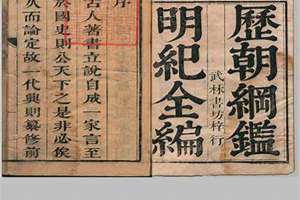 歷朝綱鑑
武林書坊梓行
明紀全編
序
古人著書立說自成一家言至
於國史則公天下之是非必俟
久而論定故一代典則纂修前